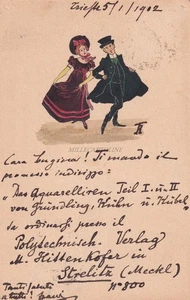 Trieste 5/1/1902
MILLECARTOLINE
II
Cara Eugenia! Ti mando il
promesso indirizzo:
"Das Aquarelliren Teil I. u. II
von Gründling, Kühn u. Kübel"
da ordinarsi presso il
Polytechnisch. Verlag
M. Hittenkofer in
Strelitz (Meckl)
Nº 300
Tanti saluti
a tutti!